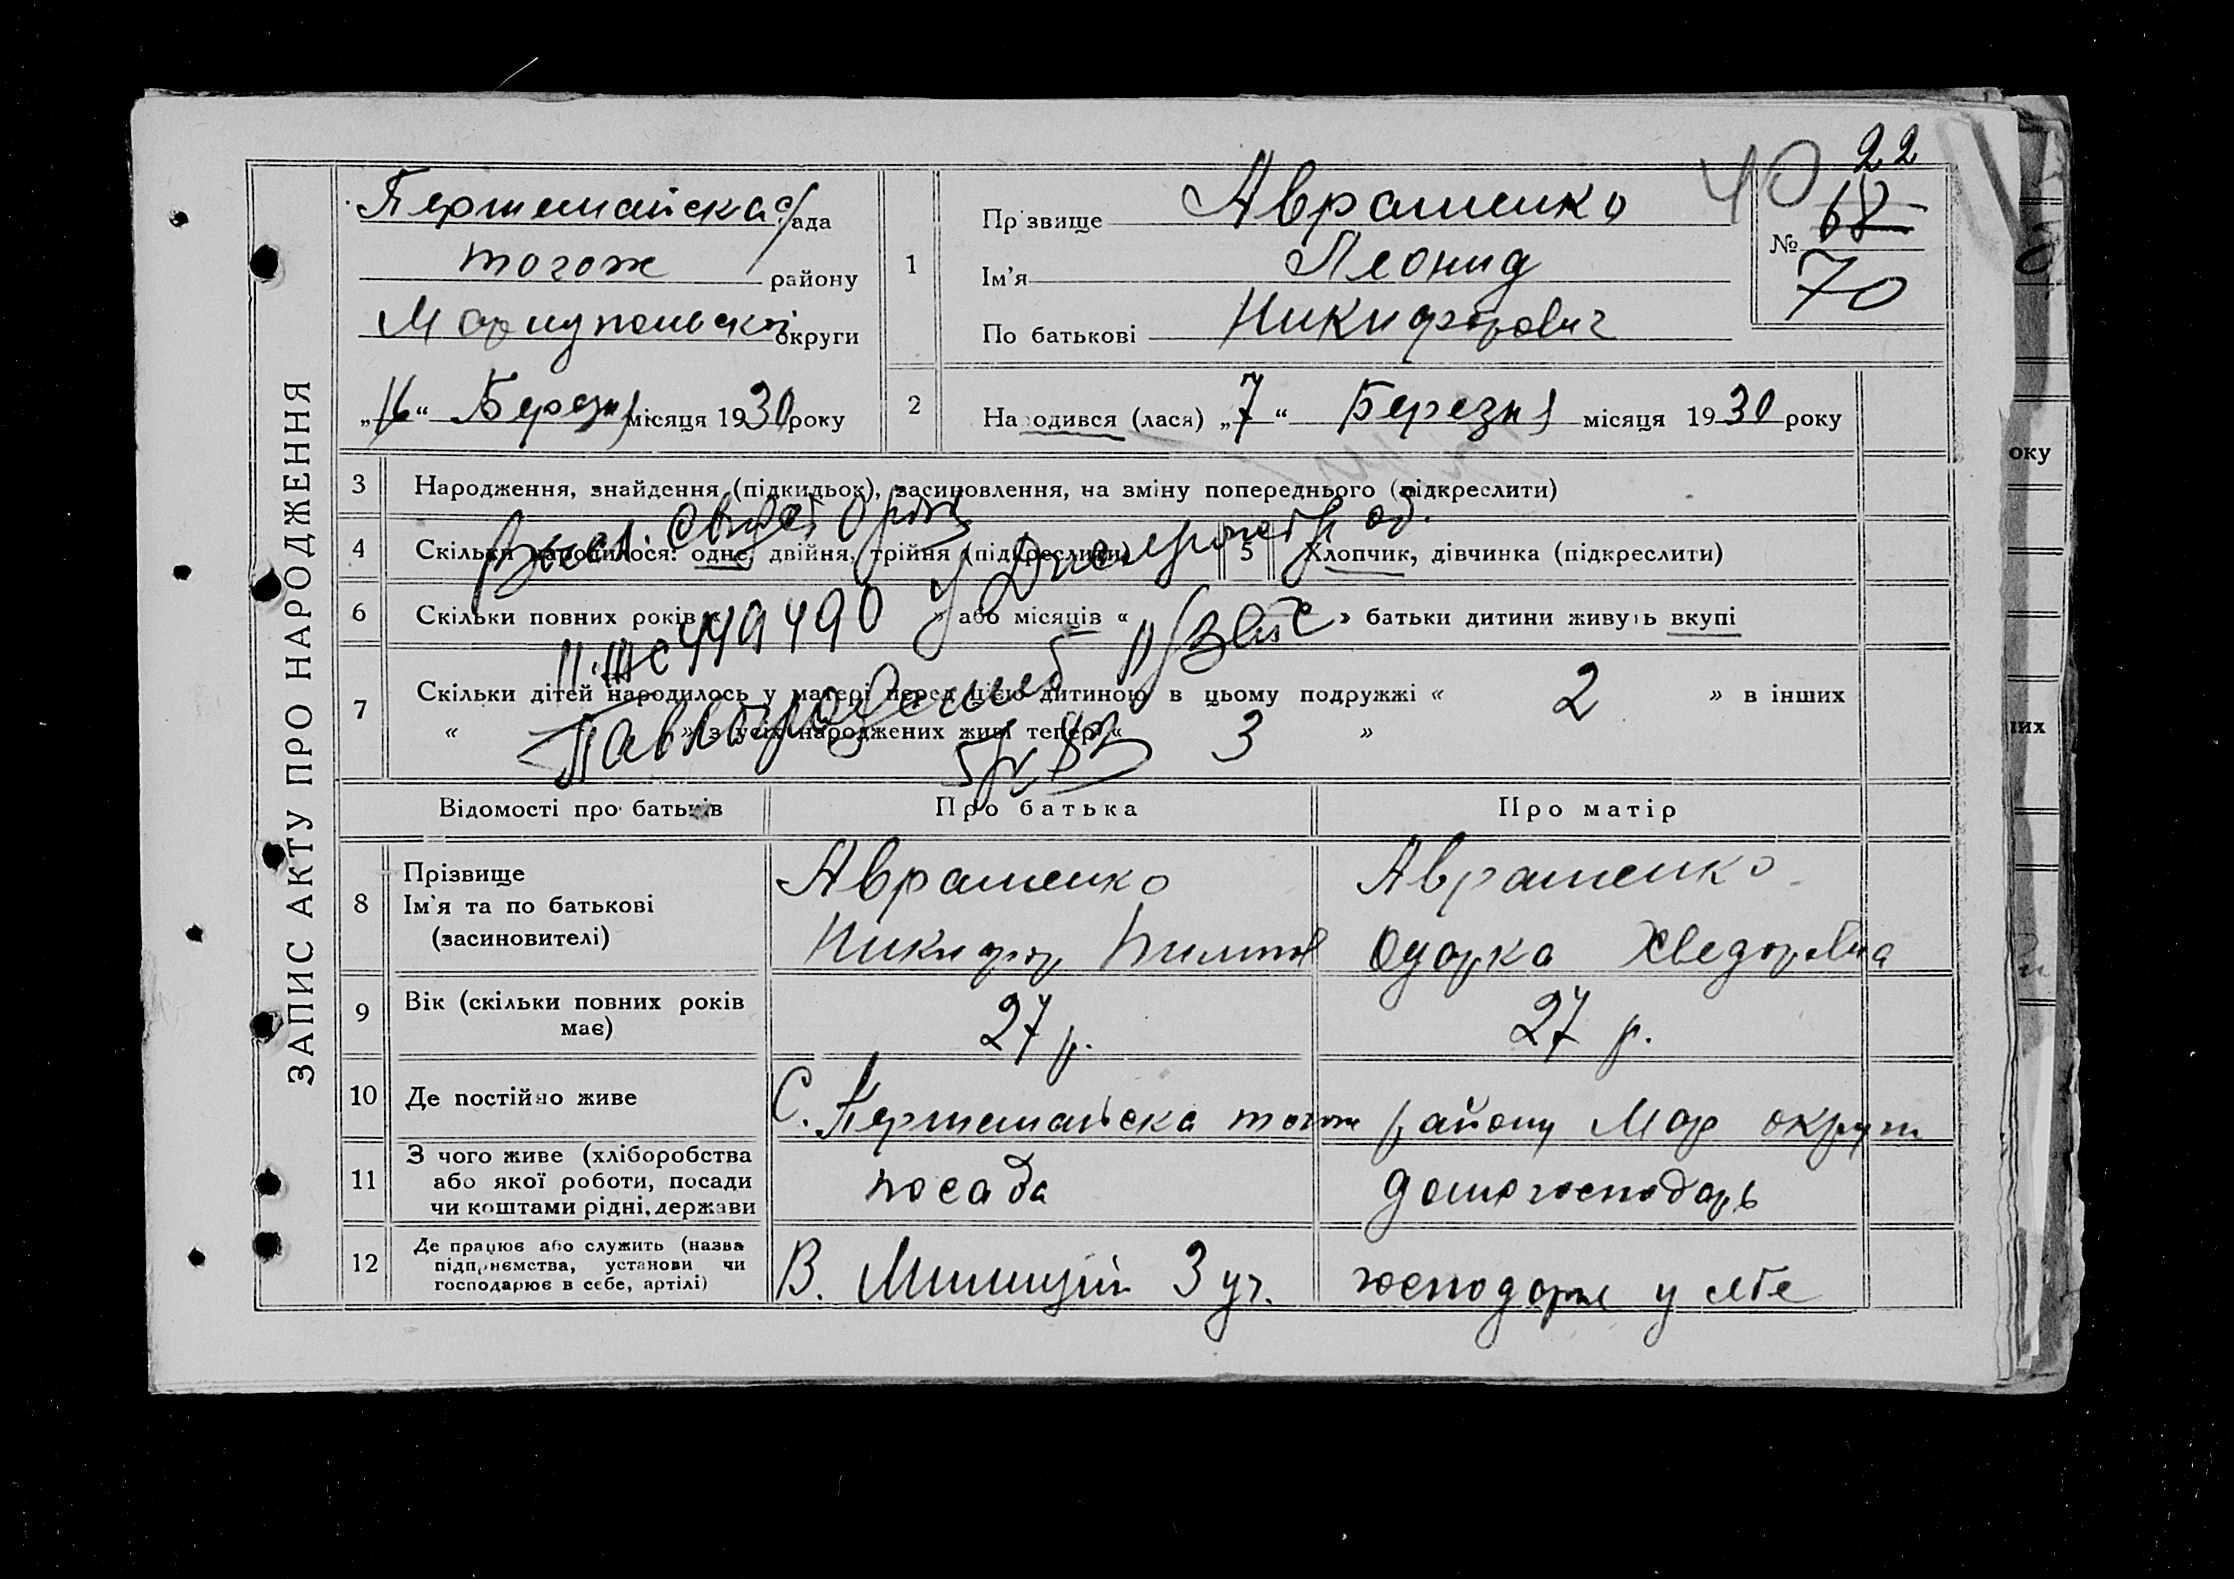 22
40
68
№
70
ЗАПИС АКТУ ПРО НАРОДЖЕННЯ
Першемайска с/рада
тогож району
Мариупольскої округи
„16“ Березня місяця 1930 року
1
Прізвище Авраменко
Ім'я Леонид
По батькові Никифорович
2 Народився (лася) „7“ Березня місяця 1930 року
3 Народження, знайдення (підкидьок), засиновлення, на зміну попереднього (підкреслити)
4 Скільки народилося: одне, двійня, трійня (підкреслити) 5 Хлопчик, дівчинка (підкреслити)
6 Скільки повних років « » або місяців « » батьки дитини живуть вкупі
449490
7 Скільки дітей народилось у матері перед цією дитиною в цьому подружжі « 2 » в інших
« » з усіх народжених живі тепер « 3 »
Відомості про батьків Про батька Про матір
8 Прізвище
Ім'я та по батькові
(засиновителі)
Авраменко
Никифор
Авраменко
Одарка Хведоровна
9 Вік (скільки повних років
має)
27 р. 27 р.
10 Де постійно живе С. Першемайска тогож району Мар округи
11 З чого живе (хліборобства
або якої роботи, посади
чи коштами рідні, держави
посада домогосподарь
12 Де працює або служить (назва
підприємства, установи чи
господарює в себе, артілі)
В. Милиції 3 уч. господарює у себе
оку
них